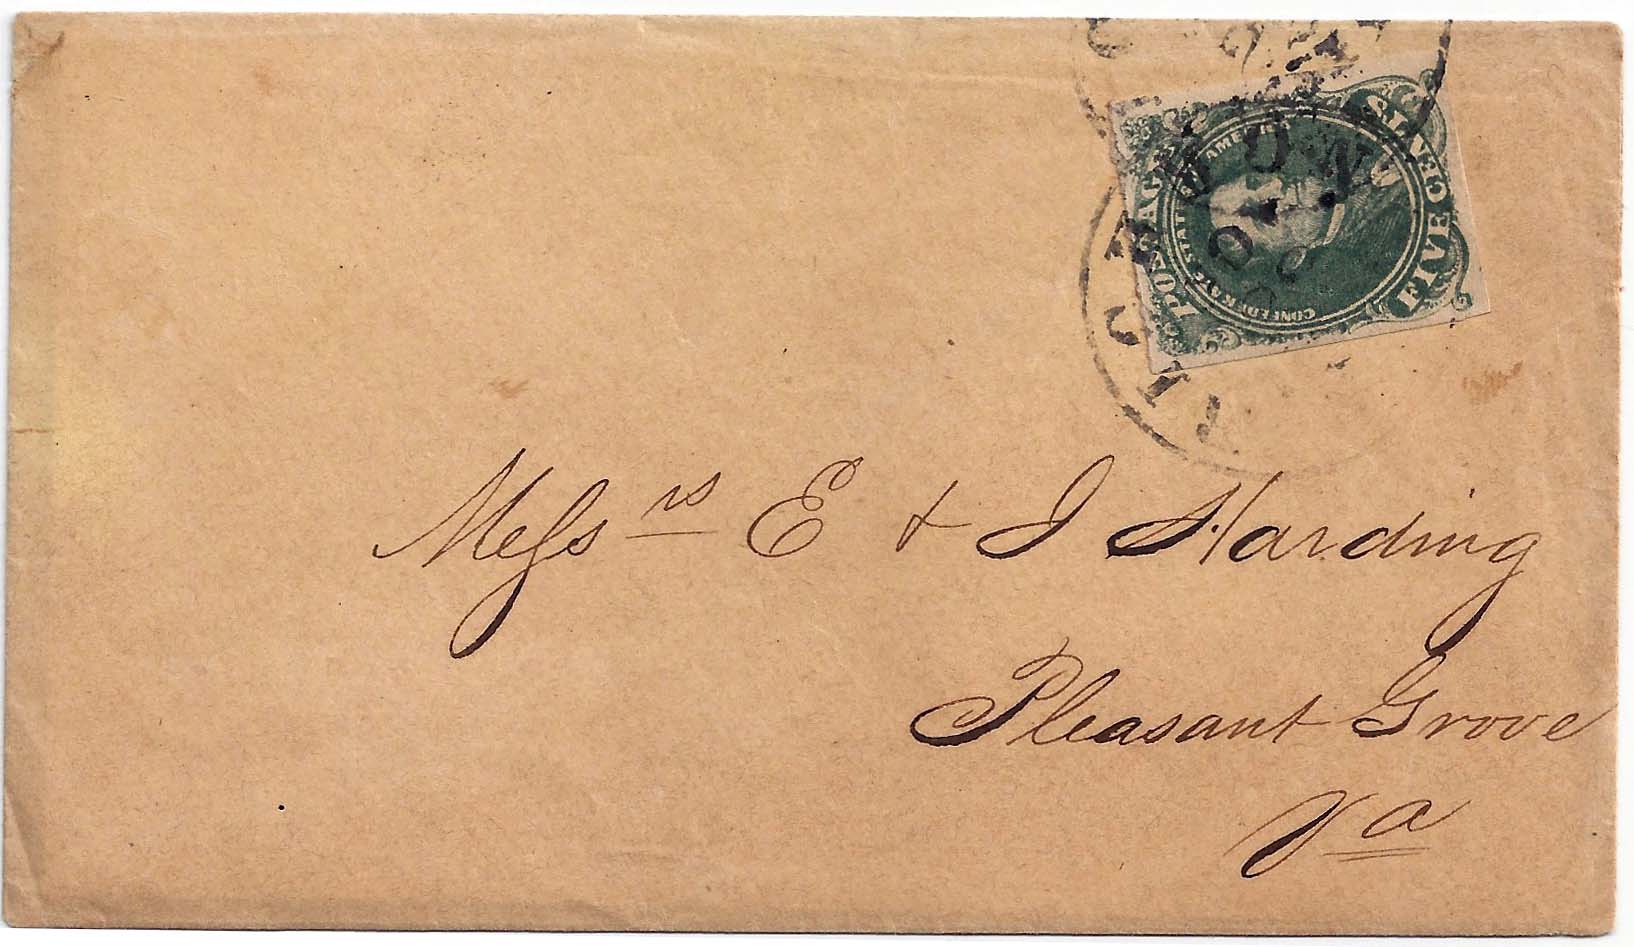 POSTAGE
CONFEDERATE STATES OF AMERICA
FIVE CENTS
Mess rs E & J Harding
Pleasant Grove
Va